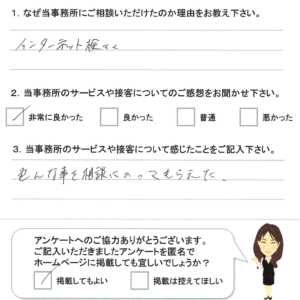 1. なぜ当事務所にご相談いただけたのか理由をお教え下さい。
インターネット経て
2. 当事務所のサービスや接客についてのご感想をお聞かせ下さい。
非常に良かった 良かった 普通 悪かった
3. 当事務所のサービスや接客について感じたことをご記入下さい。
色んな事を相談にのってもらえた。
アンケートへのご協力ありがとうございます。
ご記入いただきましたアンケートを匿名で
ホームページに掲載しても宜しいでしょうか?
掲載してもよい 掲載は控えてほしい